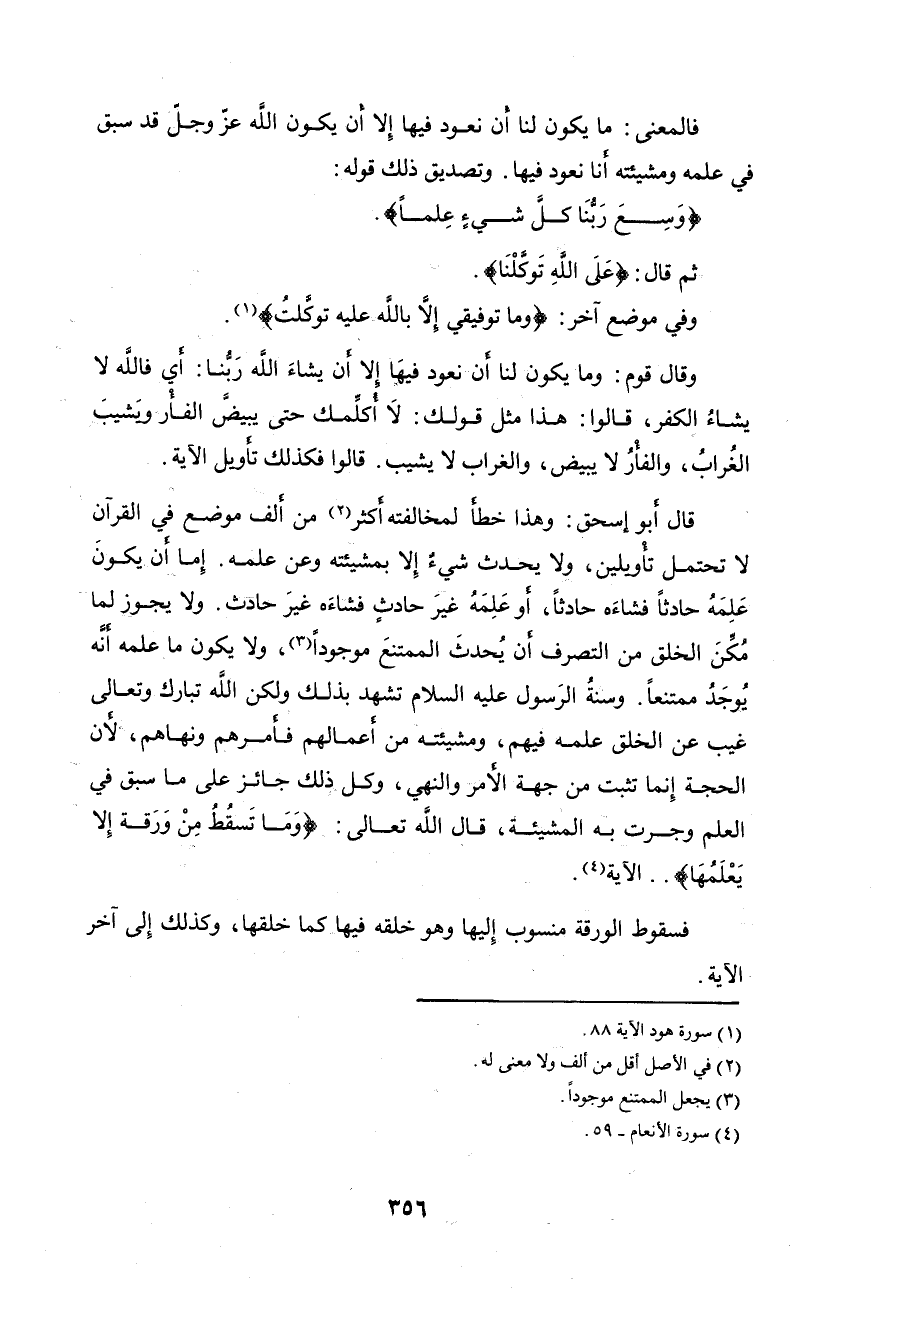 فالمعنى: ما يكون لنا أن نعود فيها إلا أن يكون اللَّه عزّ وجلّ قد سبق
في علمه ومشيئته أنا نعود فيها. وتصديق ذلك قوله:
﴿وَسِعَ رَبُّنَا كلَّ شيءٍ عِلماً﴾.
ثم قال: ﴿عَلَى اللَّهِ تَوكَّلْنَا﴾.
وفي موضع آخر: ﴿وما توفيقي إلَّا باللَّه عليه توكَّلتُ﴾(١).
وقال قوم: وما يكون لنا أن نعود فيهَا إلا أن يشاءَ اللَّه رَبُّنا: أي فاللَّه لا
يشاءُ الكفر، قالوا: هذا مثل قولك: لَا أكلِّمك حتى يبيضَّ الفأر ويَشيبَ
الغُرابُ، والفأرُ لا يبيض، والغراب لا يشيب. قالوا فكذلك تأويل الآية.
قال أبو إسحق: وهذا خطأ لمخالفته أكثر(٢) من ألف موضع في القرآن
لا تحتمل تأويلين، ولا يحدث شيءٌ إلا بمشيئته وعن علمه. إما أن يكونَ
عَلِمَهُ حادثاً فشاءَه حادثاً، أو عَلِمَهُ غيرَ حادثٍ فشاءَه غيرَ حادث. ولا يجوز لما
مُكِّنَ الخلق من التصرف أن يُحدثَ الممتنعَ موجوداً(٣)، ولا يكون ما علمه أنَّه
يُوجَدُ ممتنعاً. وسنةُ الرَسول عليه السلام تشهد بذلك ولكن اللَّه تبارك وتعالى
غيب عن الخلق علمه فيهم، ومشيئته من أعمالهم فأمرهم ونهاهم، لأن
الحجة إنما تثبت من جهة الأمر والنهي، وكل ذلك جائز على ما سبق في
العلم وجرت به المشيئة، قال اللَّه تعالى: ﴿وَمَا تَسقُطُ مِنْ وَرَقة إلا
يَعْلَمُهَا﴾.. الآية(٤).
فسقوط الورقة منسوب إليها وهو خلقه فيها كما خلقها، وكذلك إلى آخر
الآية.
(١) سورة هود الآية ٨٨.
(٢) في الأصل أقل من ألف ولا معنى له.
(٣) يجعل الممتنع موجوداً.
(٤) سورة الأنعام ـ ٥٩.
٣٥٦